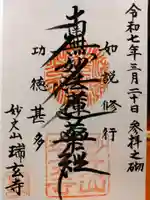 令和七年三月二十日 参拝之砌
如説修行
南無妙法蓮華経
功徳甚多
妙光山 瑞玄寺